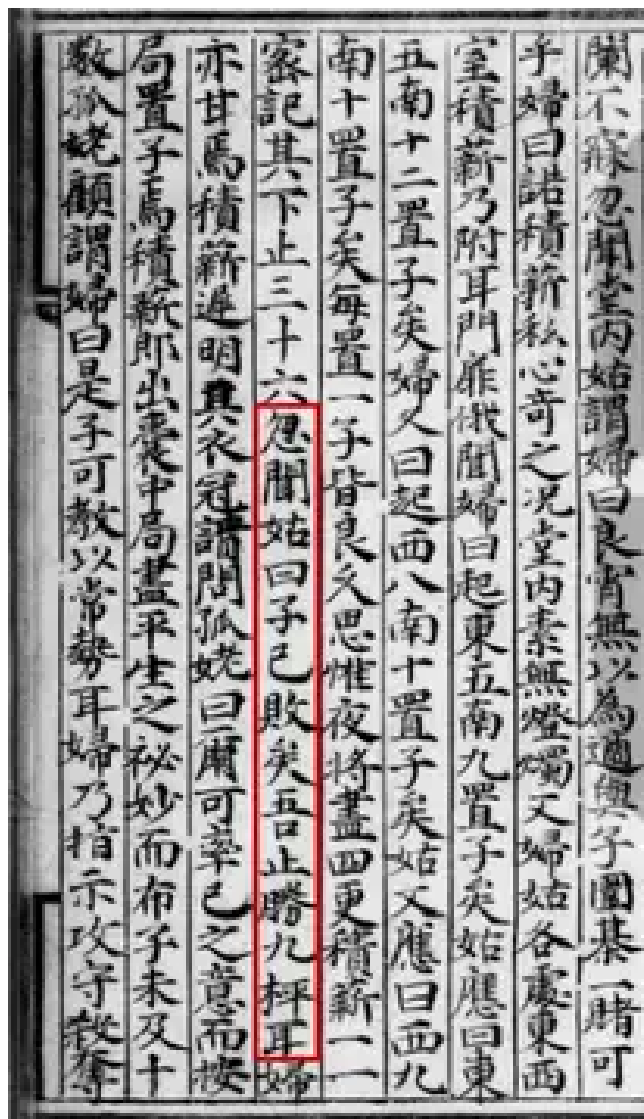 闌不寐忽聞堂內姑謂婦曰良宵無以為適與子圍棊一賭可
乎婦曰諾積薪私心奇之况堂內素無燈燭又婦姑各處東西
室積薪乃附耳門扉俄聞婦曰起東五南九置子矣姑應曰東
五南十二置子矣婦又曰起西八南十置子矣姑又應曰西九
南十置子矣每置一子皆良久思惟夜將盡四更積薪一一
密記其下止三十六忽聞姑曰子已敗矣吾止勝九枰耳婦
亦甘焉積薪遲明具衣冠請問孤姥曰爾可率己之意而按
局置子焉積薪即出橐中局盡平生之祕妙而布子未及十
數孤姥顧謂婦曰是子可教以常勢耳婦乃指示攻守殺奪